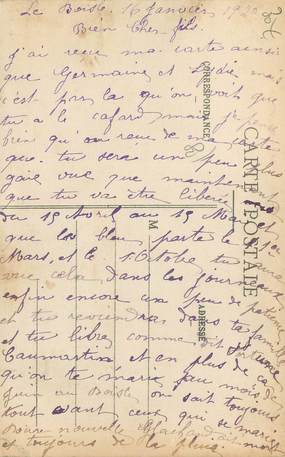 Le Boisle 16 Janvier 1920
Bien Cher fils.
J'ai reçu ma carte ainsi
que Germaine et Lydie mais
c'est par la qu'on voit que
tu a le cafard mais
bien qu'on reçu de ma carte
que tu sera un peu plus
gaie vue que maintenant
que tu va être liberé
du 15 Avril au 15 Mai et
que les bleu parte le
Mars, et le 1 Octobre tu aura
vue cela dans les journaux
enfin encore un peu de patience
et tu reviendras dans ta famille
et tu libre comme
Caumartin et en plus de ca
qu'on te marie au mois de
Juin au Boisle on sait toujours
tout avant ceux qui se marie
nouvelle est mort
et toujours de la pluie.
CORRESPONDANCE
CARTE POSTALE
ADRESSE
M